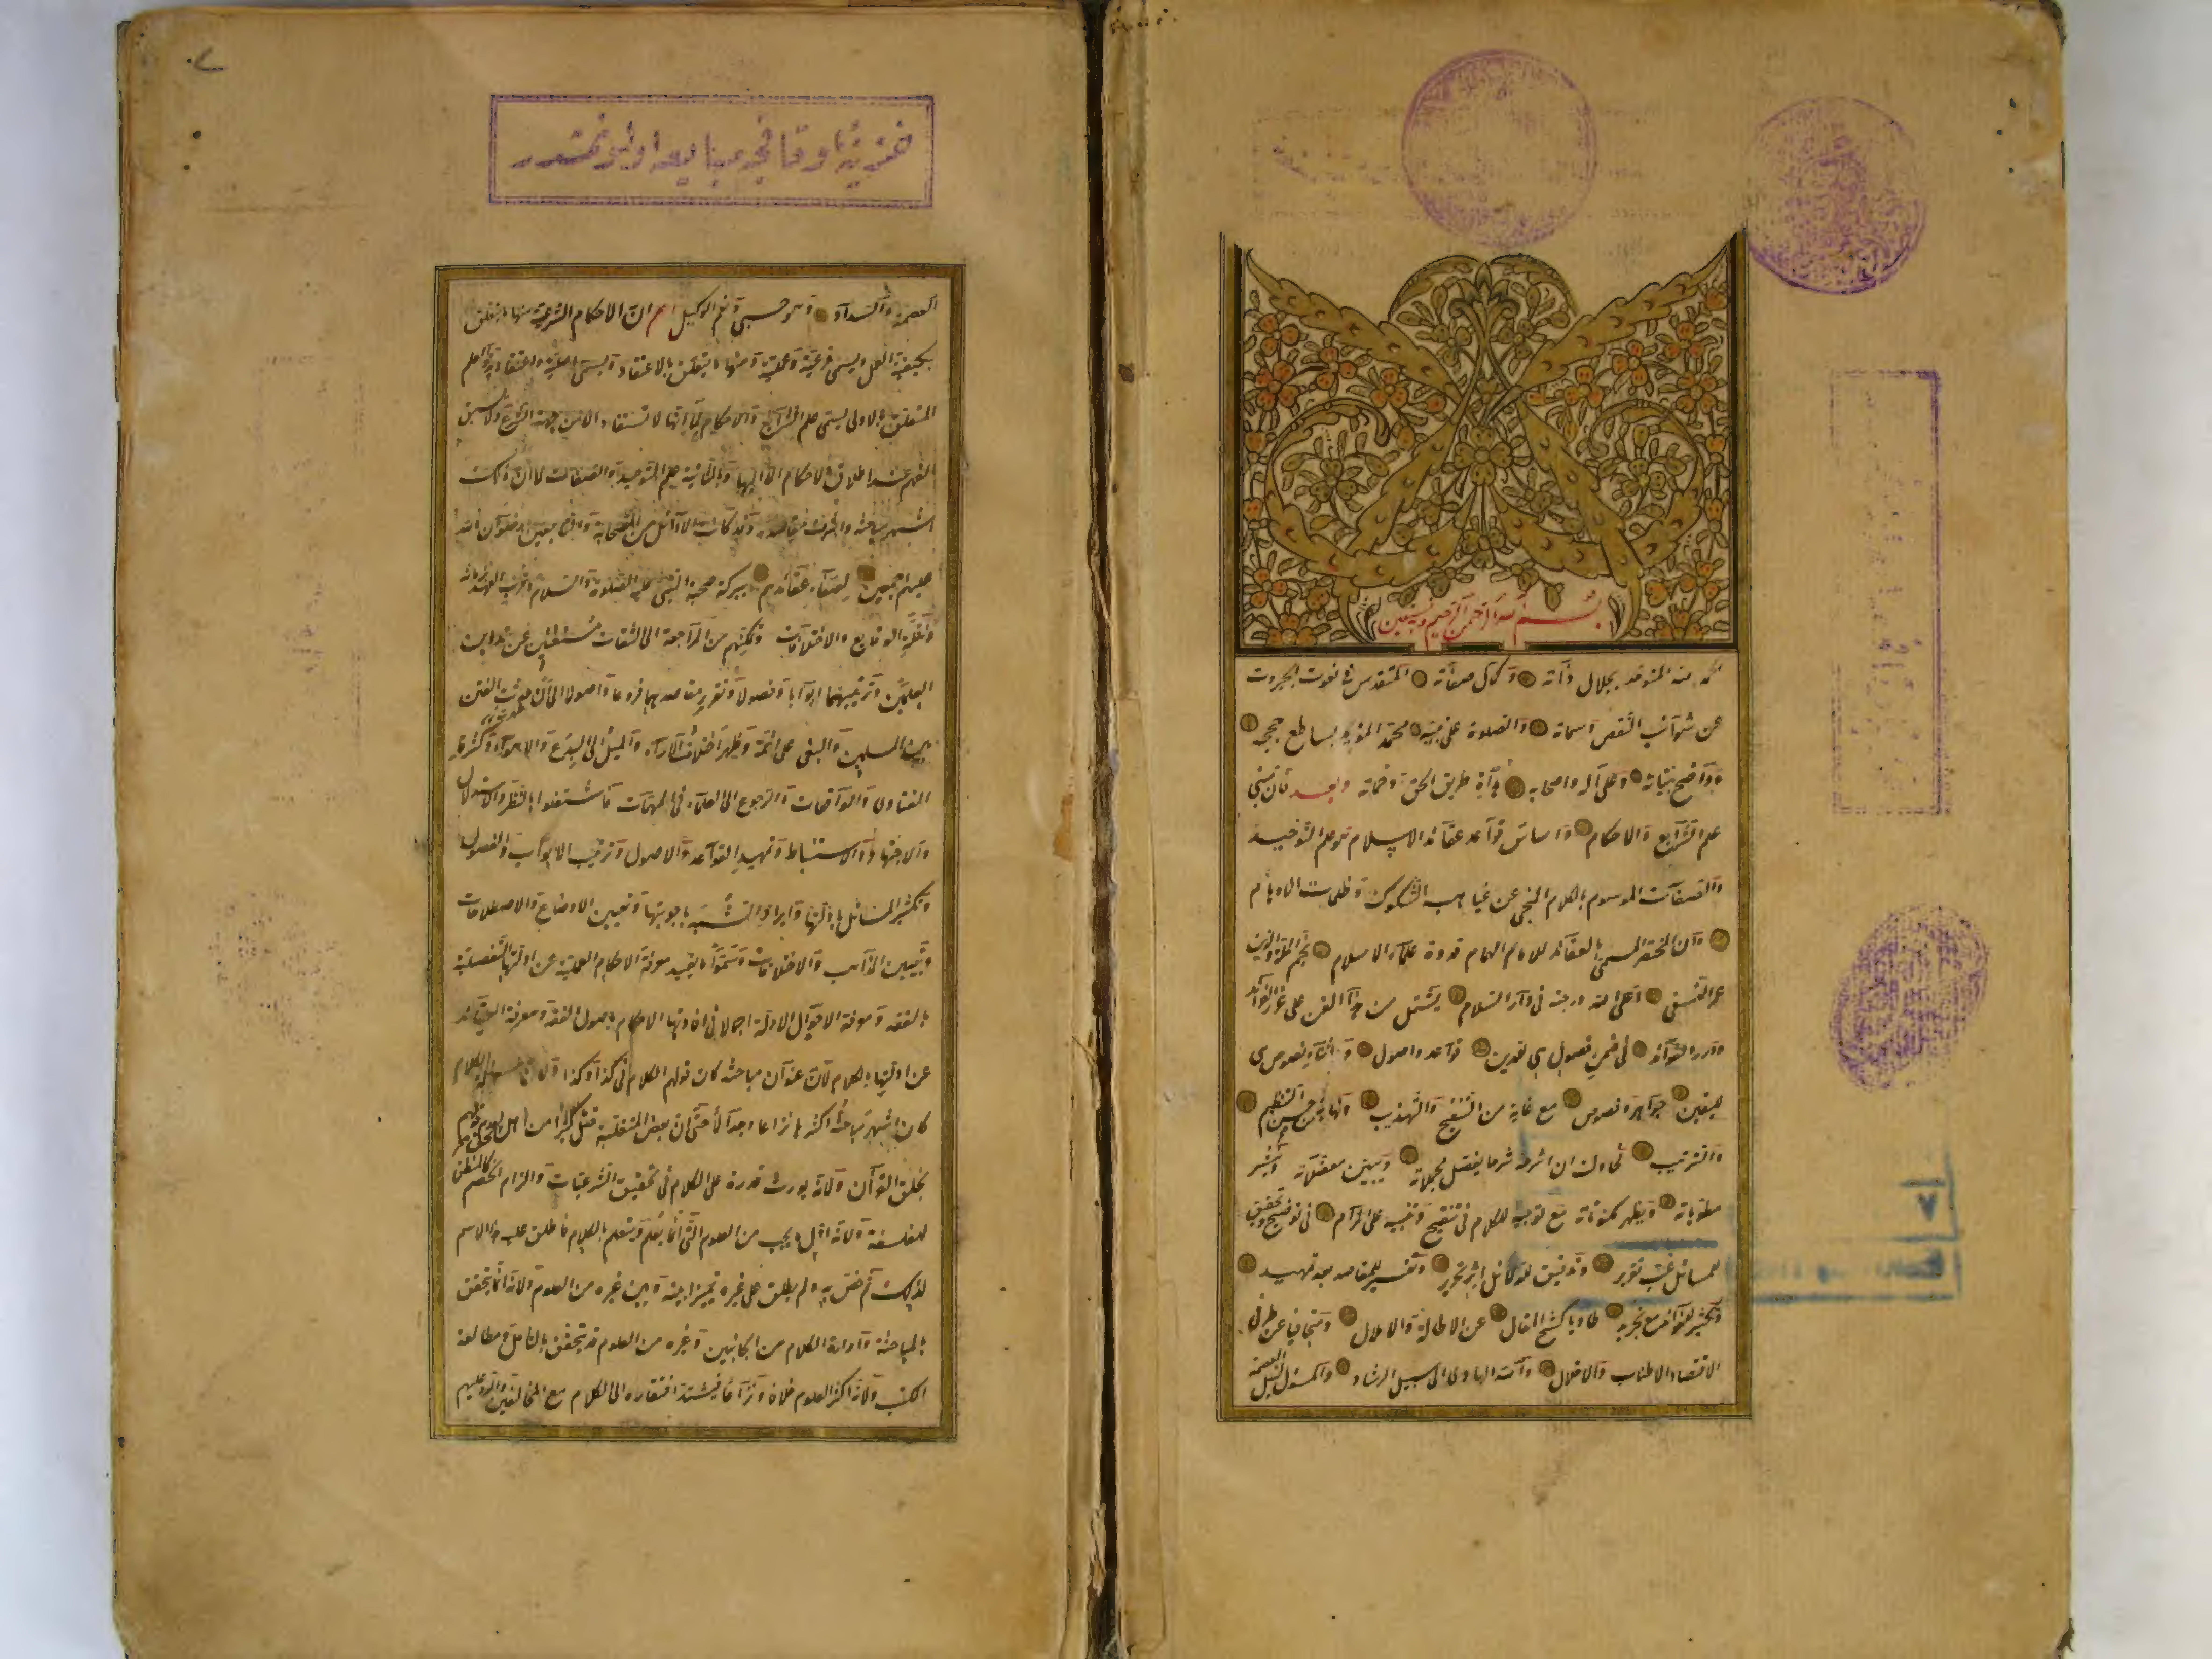 بسم الله الرحمن الرحيم وبه نستعين
الحمد لله المتوحد بجلال ذاته وكمال صفاته المتقدس في نعوت الجبروت
عن شوائب النقص وسماته والصلوة على نبيه محمد المؤيد بساطع حججه
وواضح بيناته وعلى آله واصحابه هداة طريق الحق وحماته وبعد فان مبنى
علم الشرايع والاحكام واساس قواعد عقائد الاسلام هو علم التوحيد
والصفات الموسوم بالكلام المنجى عن غياهب الشكوك وظلمات الاوهام
وان المختصر المسمى بالعقائد للامام الهمام قدوة علماء الاسلام نجم الملة والدين
عمر النسفى اعلى الله درجته فى دار السلام يشتمل من هذا الفن على غرر الفوائد
ودرر الفوائد فى ضمن فصول هى للدين قواعد واصول واثناء نصوص هى
لليقين جواهر وفصوص مع غاية من التنقيح والتهذيب ونهاية من حسن التنظيم
والترتيب فحاولت ان اشرحه شرحا يفصل مجملاته ويبين معضلاته وينشر
مطوياته ويظهر مكنوناته مع توجيه للكلام فى تنقيح وتنبيه على المرام فى توضيح وتحقيق
للمسائل غب تقرير وتدقيق للدلائل اثر تحرير وتفسير للمقاصد بعد تمهيد
وتكثير للفوائد مع تجريد طاويا كشح المقال عن الاطالة والاملال ومتجافيا عن طرفى
الاقتصاد الاطناب والاخلال والله الهادى الى سبيل الرشاد والمسئول لنيل العصمة
خزينۀ اوقافجه مبايعه اولنمشدر
العصمة والسداد وهو حسبى ونعم الوكيل اعلم ان الاحكام الشرعية منها ما يتعلق
بكيفية العمل ويسمى فرعية وعملية ومنها ما يتعلق بالاعتقاد ويسمى اصلية واعتقادية والعلم
المتعلق بالاولى يسمى علم الشرايع والاحكام لما انها لا تستفاد الا من جهة الشرع ولا يسبق
الفهم عند اطلاق الاحكام الا اليها وبالثانية علم التوحيد والصفات لما ان ذلك
اشهر مباحثه واشرف مقاصده وقد كانت الاوائل من الصحابة والتابعين رضوان الله
عليهم اجمعين لصفاء عقائدهم ببركة صحبة النبى عليه الصلوة والسلام وقرب العهد بزمانه
ولقلة الوقايع والاختلافات وتمكنهم من المراجعة الى الثقات مستغنين عن تدوين
العلمين وترتيبهما ابوابا وفصولا وتقرير مقاصدهما فروعا واصولا الى ان حدثت الفتن
بين المسلمين والبغى على ائمة وظهر اختلاف الآراء والميل الى البدع والاهواء وكثرت
الفتاوى والواقعات والرجوع الى العلماء فى المهمات فاشتغلوا بالنظر والاستدلال
والاجتهاد والاستنباط وتمهيد القواعد والاصول وترتيب الابواب والفصول
وتكثير المسائل بادلتها وايراد الشبه باجوبتها وتعيين الاوضاع والاصطلاحات
وتبيين المذاهب والاختلافات وسموا ما يفيد معرفة الاحكام العملية عن ادلتها التفصيلية
بالفقه ومعرفة الاحوال الادلة اجمالا فى افادتها الاحكام باصول الفقه ومعرفة العقائد
عن ادلتها بالكلام لان عنوان مباحثه كان قولهم الكلام فى كذا وكذا ولان مسئلة الكلام
كان اشهر مباحثه واكثرها نزاعا وجدالا حتى ان بعض المتغلبة قتل كثيرا من اهل الحق لعدم قولهم
بخلق القرآن ولانه يورث قدرة على الكلام فى تحقيق الشرعيات والزام الخصم كالمنطق
للفلسفة ولانه اول ما يجب من العلوم التى انما يعلم ويتعلم بالكلام فاطلق عليه هذا الاسم
لذلك ثم خص به ولم يطلق على غيره تميزا بينه وبين غيره من العلوم ولانه انما يتحقق
بالمباحثة وادارة الكلام من الجانبين وغيره من العلوم قد يتحقق بالتأمل ومطالعة
الكتب ولانه اكثر العلوم خلافا ونزاعا فيشتد افتقاره الى الكلام مع المخالفين والرد عليهم